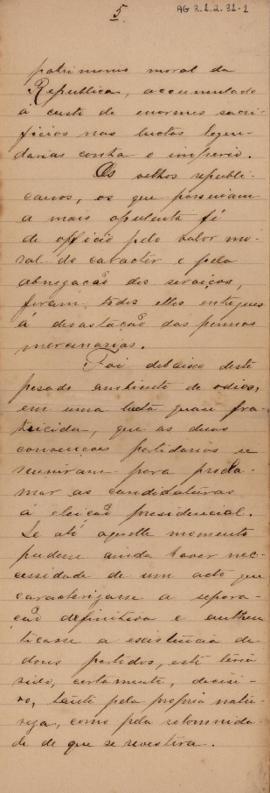 5.
AG 2.1.2.31-1
patrimonio moral da
Republica, accumulado
á custa de enormes sacri-
ficios nas luctas legen-
darias contra o imperio.
Os velhos republi-
canos, os que possuiam
a mais opulenta fé
de officio pelo valor mo-
ral do caracter e pela
abnegação dos serviços,
foram todos elles entregues
á devastação das pennas
mercenarias.
Foi debaixo deste
pesado ambiente de odios,
em uma lucta quase fra-
tricida, que as duas
convenções partidarias se
reuniram para procla-
mar as candidaturas
á eleição presidencial.
Se até aquelle momento
pudesse ainda haver nec-
cessidade de um acto que
caracterizasse a separa-
ção definitiva e authen-
ticasse a existencia de
dous partidos, este teria
sido, certamente, decisi-
vo, tanto pela propria natu-
reza, como pela solemnida-
de de que se revestira.